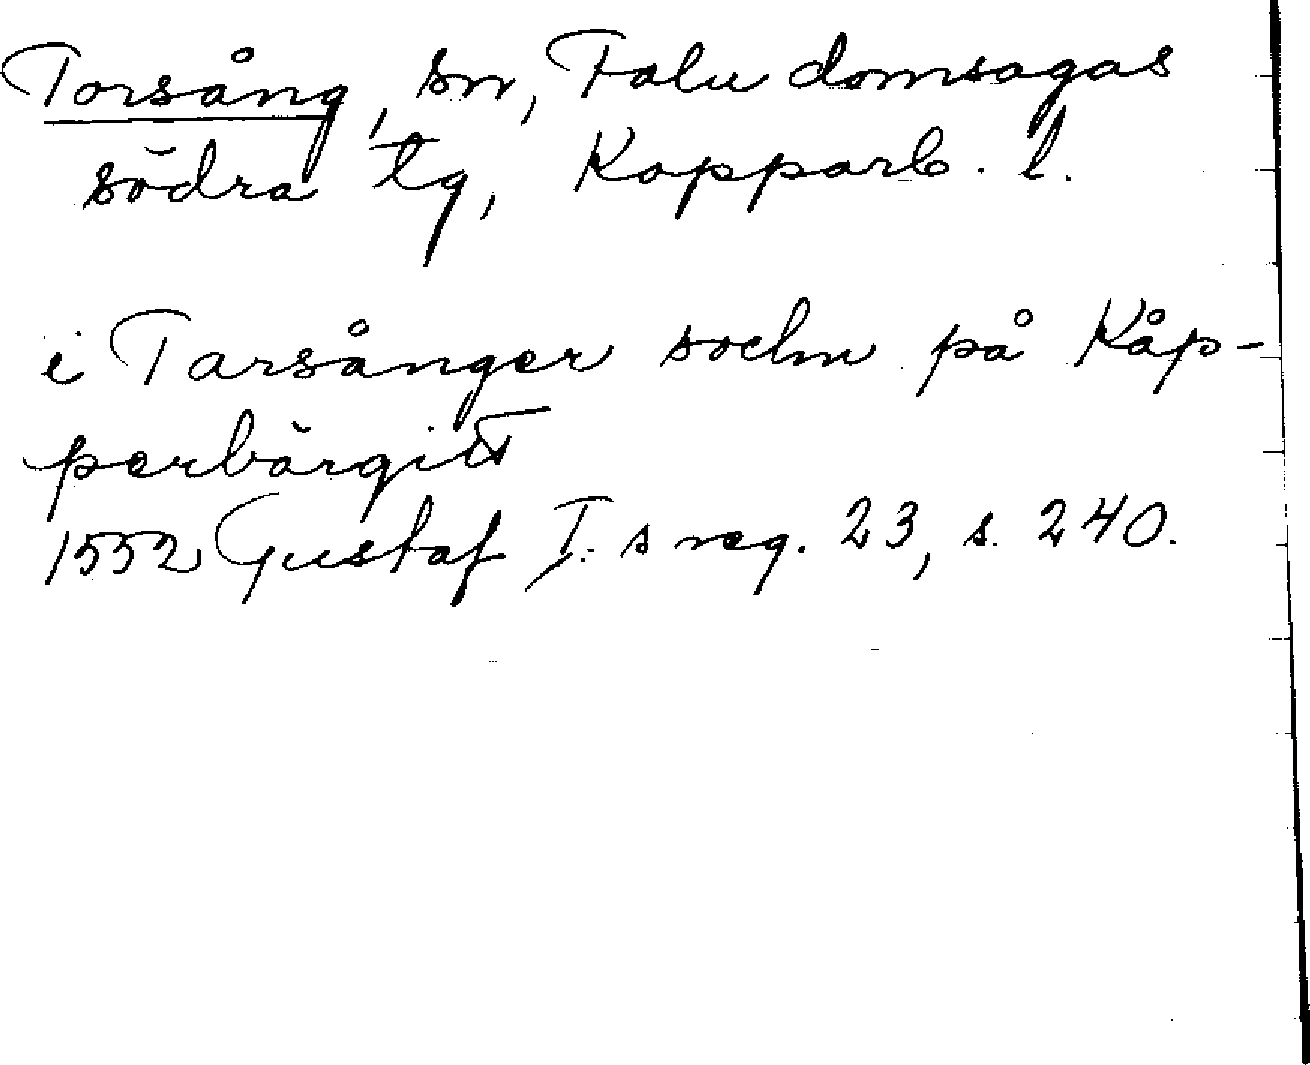 Torsång, sn, Falu domsagas
södra tg, Kopparb. l.
i Tarsånger sochn på Kåp-
perbärgitt
1552 Gustaf I:s reg. 23, s. 240.